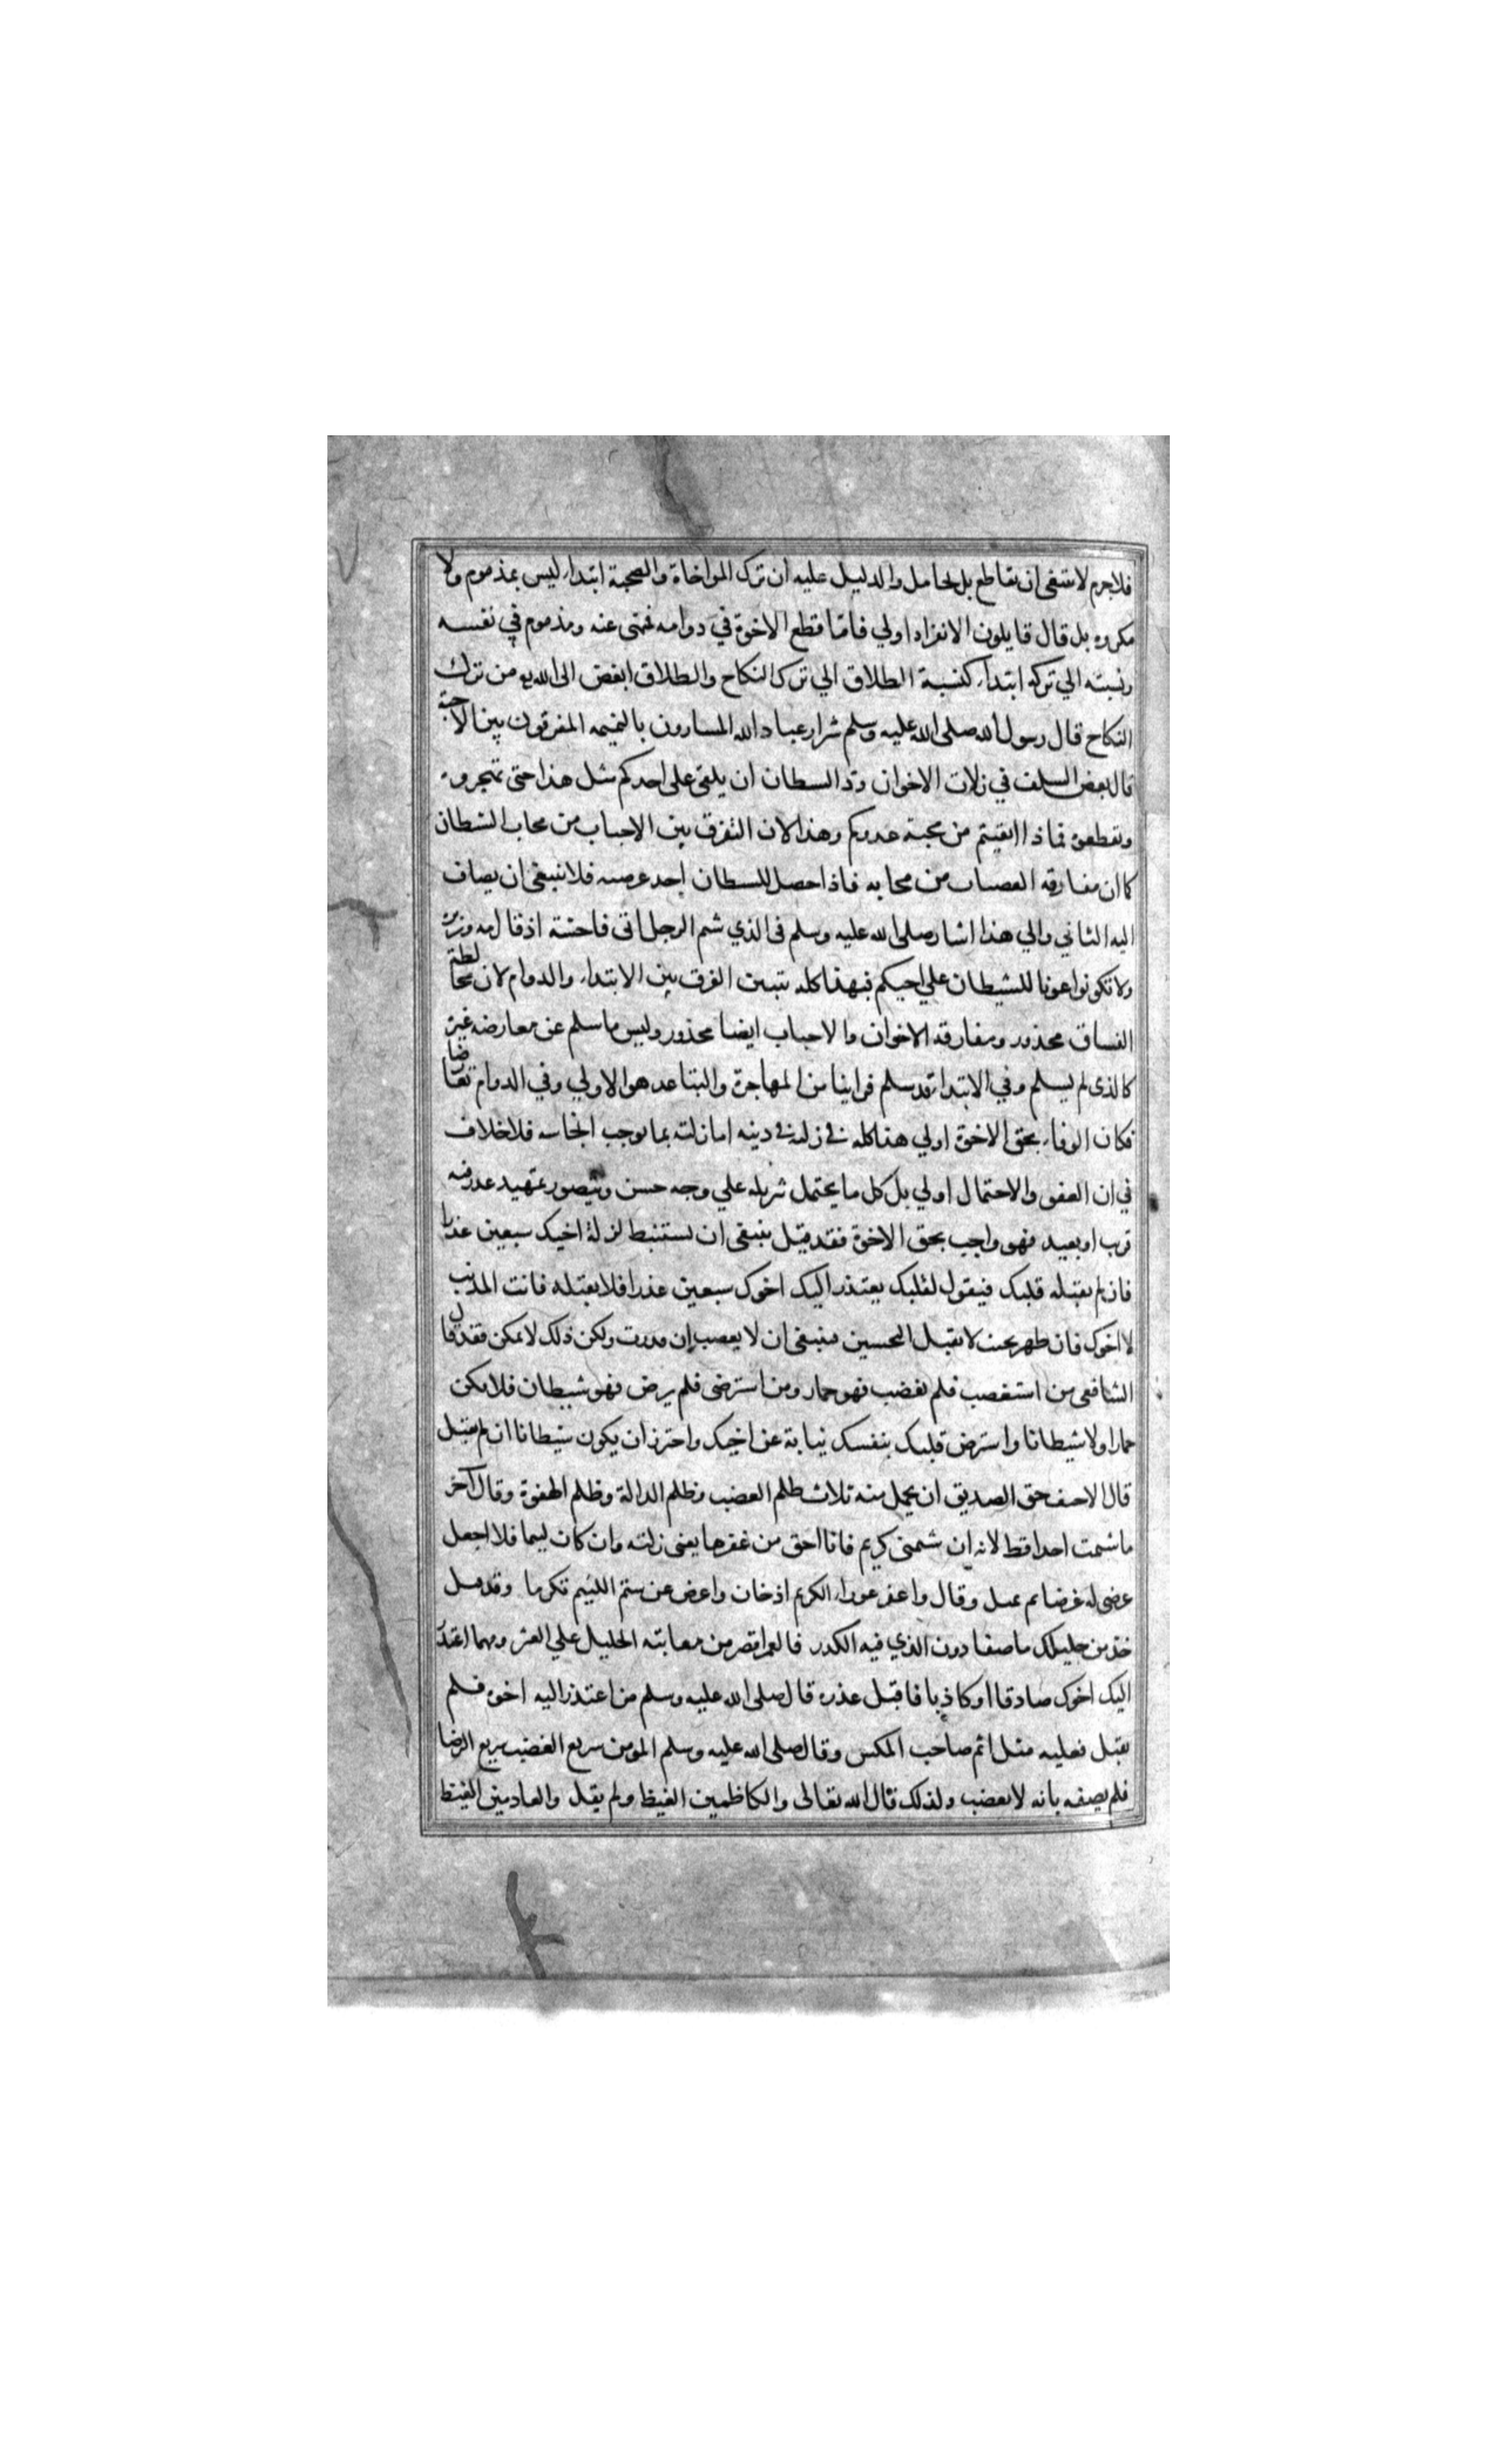 فلا جرم لا ينبغي ان يقاطع بل يجامل والدليل عليه ان ترك المواخاة والصحبة ابتداء ليس بمذموم ولا
مكروه بل قال قايلون الانفراد اولي فاما قطع الاخوة في دوامه فمنهى عنه ومذموم في نفسه
ونسبته الي تركه ابتداء كنسبة الطلاق الي ترك النكاح والطلاق ابغض الى الله من ترك
النكاح قال رسول الله صلى الله عليه وسلم شرار عباد الله المساون بالنميمه المفرقون بين الاحبة
قال بعض السلف في زلات الاخوان ود السطان ان يلقى على احدكم مثل هذا حتى تهجروه
وتقطعوه فماذا ابقيتم من محبة عدوكم وهذا لان التفرق بين الاحباب من محاب الشطان
كما ان مفارقه العصيان من محابه فاذا حصل للسطان احد غرضيه فلا ينبغى ان يضاف
اليه الثاني والي هذا اشار صلى الله عليه وسلم فى الذي شتم الرجل اتى فاحشة اذ قال مه وزبره
ولا تكونوا عونا للشيطان علي اخيكم فبهذا كله يتبين الفرق بين الابتداء والدوام لان مخالطة
الفساق محذور ومفارقه الاخوان والاحباب ايضا محذور وليس ما سلم عن معارضه غيره
كالذى لم يسلم وفي الابتداء قد سلم فراينا من المهاجرة والتباعد هو الاولي وفي الدوام تعارضا
فكان الوفاء بحق الاخوة اولي هذا كله في زلته في دينه اما زلته بما يوجب ايحاشه فلا خلاف
في ان العفو والاحتمال اولي بل كل ما يحتمل تنزيله علي وجه حسن ويتصور تمهيد عذر فيه
قرب او بعيد فهو واجب بحق الاخوة فقد قيل ينبغى ان تستنبط لزلة اخيك سبعين عذرا
فان لم يقبله قلبك فيقول لقلبك يعتذر اليك اخوك سبعين عذرا فلا يقبله فانت المذنب
لا اخوك فان ظهر بحيث لا يقبل التحسين فينبغى ان لا يغضب إن قدرت ولكن ذلك لا يمكن فقد قال
الشافعى من استغضب فلم يغضب فهو حمار ومن استرضى فلم يرض فهو شيطان فلا تكن
حمارا ولا شيطانا واسترض قلبك بنفسك نيابة عن اخيك واحترز ان يكون شيطانا ان لم يقبل
قال الاحنف حق الصديق ان يحمل منه ثلاث ظلم الغضب وظلم الدالة وظلم الهفوة وقال آخر
ما شتمت احدا قط لانه ان شتمنى كريم فانا احق من غفرها يعنى زلته وان كان ليما فلا اجعل
عرضى له غرضا ثم تمثل وقال واغفر عوراء الكريم ادخان واعرض عن شتم اللئيم تكرما وقد قيل
خذ من خليلك ما صفا دون الذي فيه الكدر فالعمر اقصر من معاتبة الخليل علي الغير ومهما اعتذر
اليك اخوك صادقا او كاذبا فاقبل عذره قال صلى الله عليه وسلم من اعتذر اليه اخوه فلم
يقبل فعليه مثل اثم صاحب المكس وقال صلى الله عليه وسلم المومن سريع الغضب سريع الرضا
فلم يصفه بانه لا يغضب ولذلك قال الله تعالى والكاظمين الغيظ ولم يقل والعادمين الغيظ